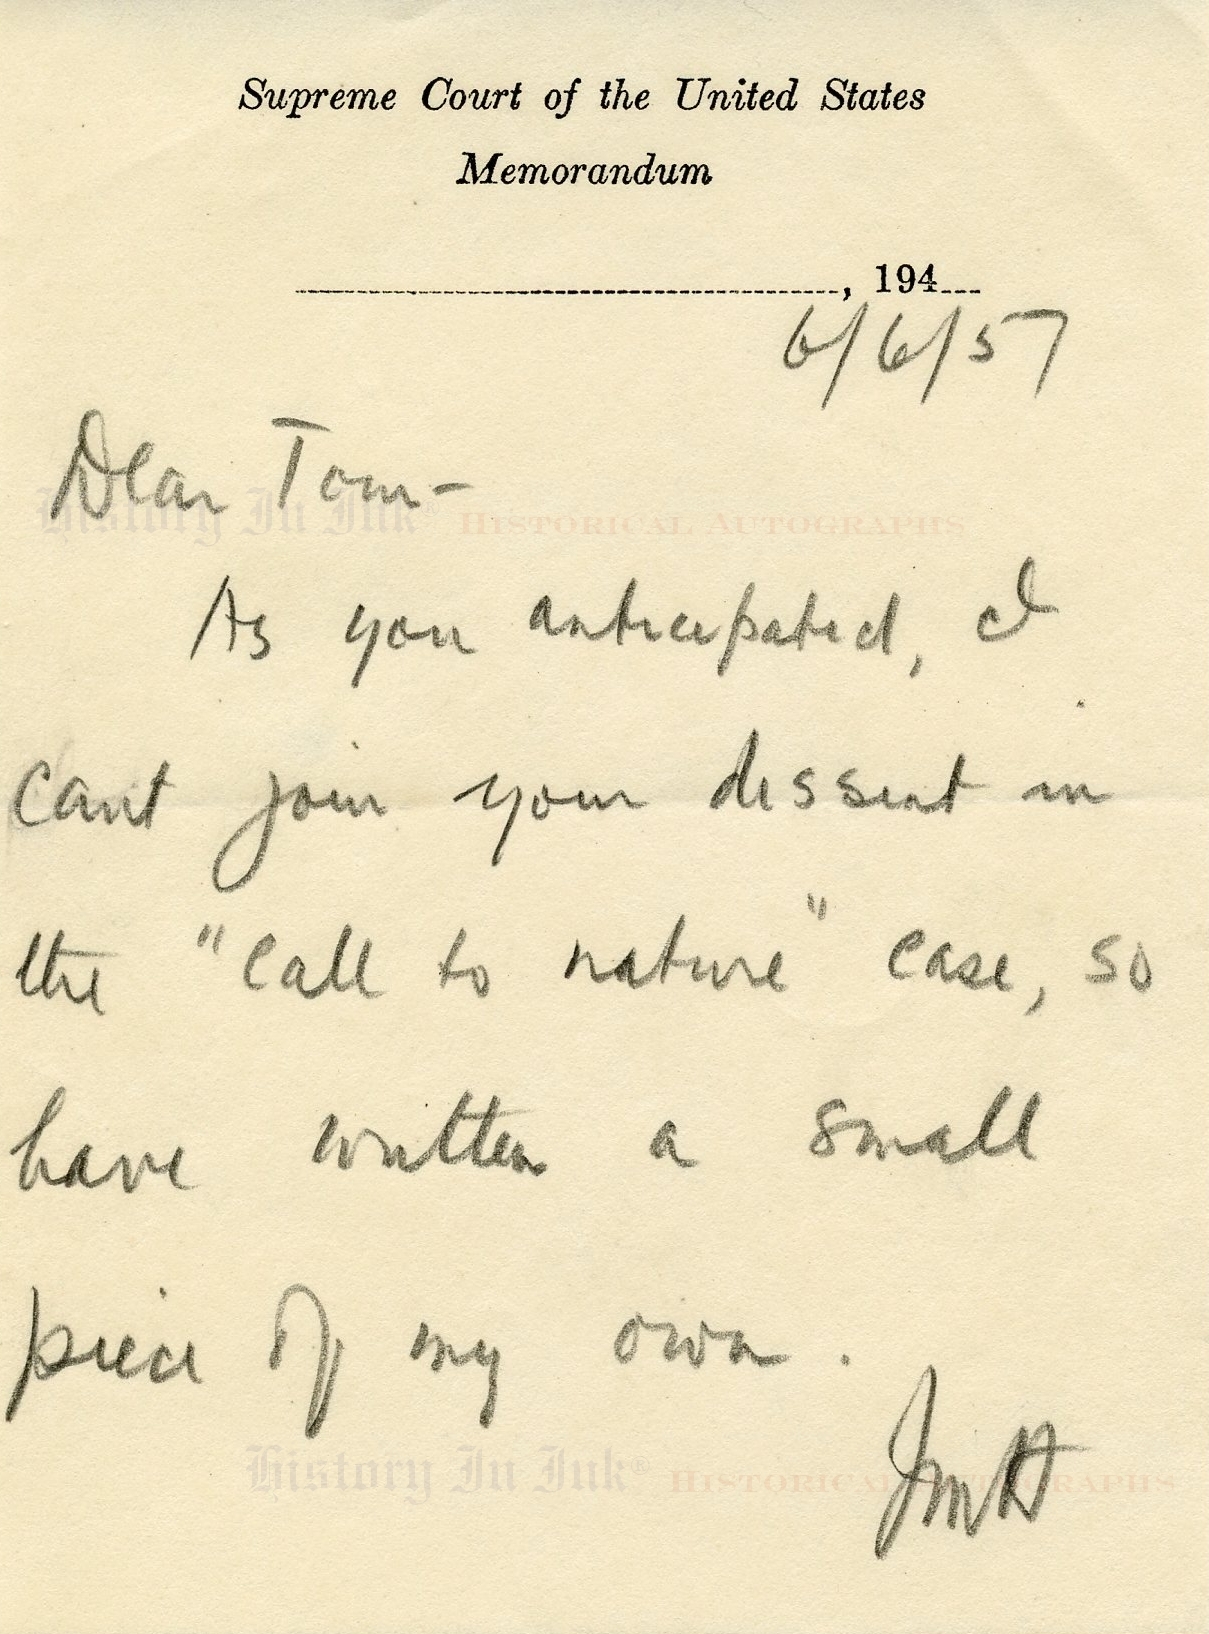 Supreme Court of the United States
Memorandum
, 194
6/6/57
Dear Tom-
History In Ink® HISTORICAL AUTOGRAPHS
As you anticipated, I
cant join your dissent in
the "call to nature" case, so
have written a small
piece of my own.
JMH
History In Ink® HISTORICAL AUTOGRAPHS